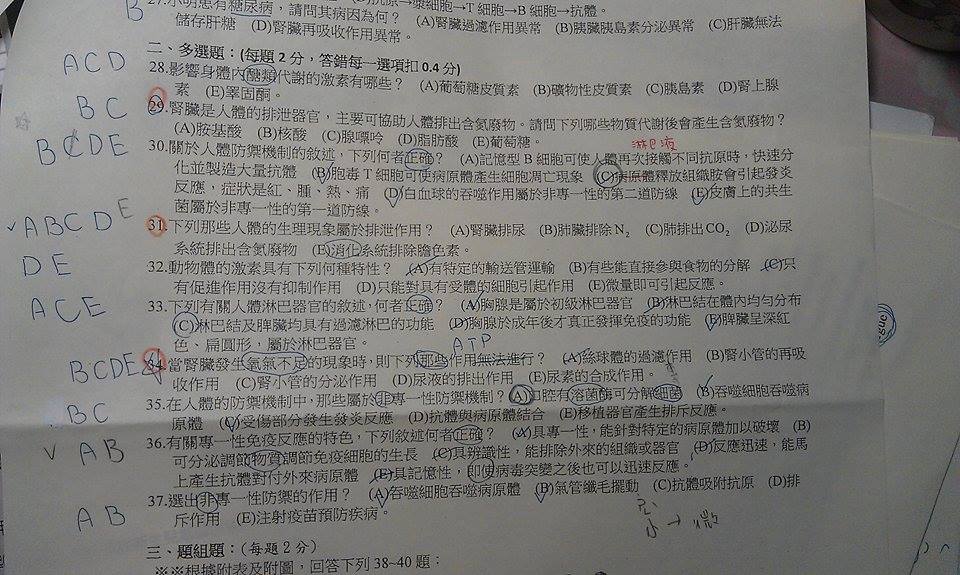 B 27.小明患有糖尿病，請問其病因為何？ (A)腎臟過濾作用異常 (B)胰臟胰島素分泌異常 (C)肝臟無法
儲存肝糖 (D)腎臟再吸收作用異常。
二、多選題：(每題 2 分，答錯每一選項扣 0.4 分)
ACD 28.影響身體內醣類代謝的激素有哪些？ (A)葡萄糖皮質素 (B)礦物性皮質素 (C)胰島素 (D)腎上腺
素 (E)睪固酮。
BC 29.腎臟是人體的排泄器官，主要可協助人體排出含氮廢物。請問下列哪些物質代謝後會產生含氮廢物？
(A)胺基酸 (B)核酸 (C)腺嘌呤 (D)脂肪酸 (E)葡萄糖。
淋巴液
BCDE 30.關於人體防禦機制的敘述，下列何者正確？ (A)記憶型 B 細胞可使人體再次接觸不同抗原時，快速分
化並製造大量抗體 (B)胞毒 T 細胞可使病原體產生細胞凋亡現象 (C)病原體釋放組織胺會引起發炎
反應，症狀是紅、腫、熱、痛 (D)白血球的吞噬作用屬於非專一性的第二道防線 (E)皮膚上的共生
菌屬於非專一性的第一道防線。
ABCDE 31.下列那些人體的生理現象屬於排泄作用？ (A)腎臟排尿 (B)肺臟排除 N₂ (C)肺排出 CO₂ (D)泌尿
系統排出含氮廢物 (E)消化系統排除膽色素。
DE 32.動物體的激素具有下列何種特性？ (A)有特定的輸送管運輸 (B)有些能直接參與食物的分解 (C)只
有促進作用沒有抑制作用 (D)只能對具有受體的細胞引起作用 (E)微量即可引起反應。
ACE 33.下列有關人體淋巴器官的敘述，何者正確？ (A)胸腺是屬於初級淋巴器官 (B)淋巴結在體內均勻分布
(C)淋巴結及脾臟均具有過濾淋巴的功能 (D)胸腺於成年後才真正發揮免疫的功能 (E)脾臟呈深紅
色、扁圓形，屬於淋巴器官。
ATP
BCDE 34.當腎臟發生氧氣不足的現象時，則下列那些作用無法進行？ (A)絲球體的過濾作用 (B)腎小管的再吸
收作用 (C)腎小管的分泌作用 (D)尿液的排出作用 (E)尿素的合成作用。
BC 35.在人體的防禦機制中，那些屬於非專一性防禦機制？ (A)口腔有溶菌酶可分解細菌 (B)吞噬細胞吞噬病
原體 (C)受傷部分發生發炎反應 (D)抗體與病原體結合 (E)移植器官產生排斥反應。
AB 36.有關專一性免疫反應的特色，下列敘述何者正確？ (A)具專一性，能針對特定的病原體加以破壞 (B)
可分泌調節物質調節免疫細胞的生長 (C)具辨識性，能排除外來的組織或器官 (D)反應迅速，能馬
上產生抗體對付外來病原體 (E)具記憶性，即使病毒突變之後也可以迅速反應。
AB 37.選出非專一性防禦的作用？ (A)吞噬細胞吞噬病原體 (B)氣管纖毛擺動 (C)抗體吸附抗原 (D)排
斥作用 (E)注射疫苗預防疾病。
三、題組題：(每題 2 分)
※※根據附表及附圖，回答下列 38~40 題：